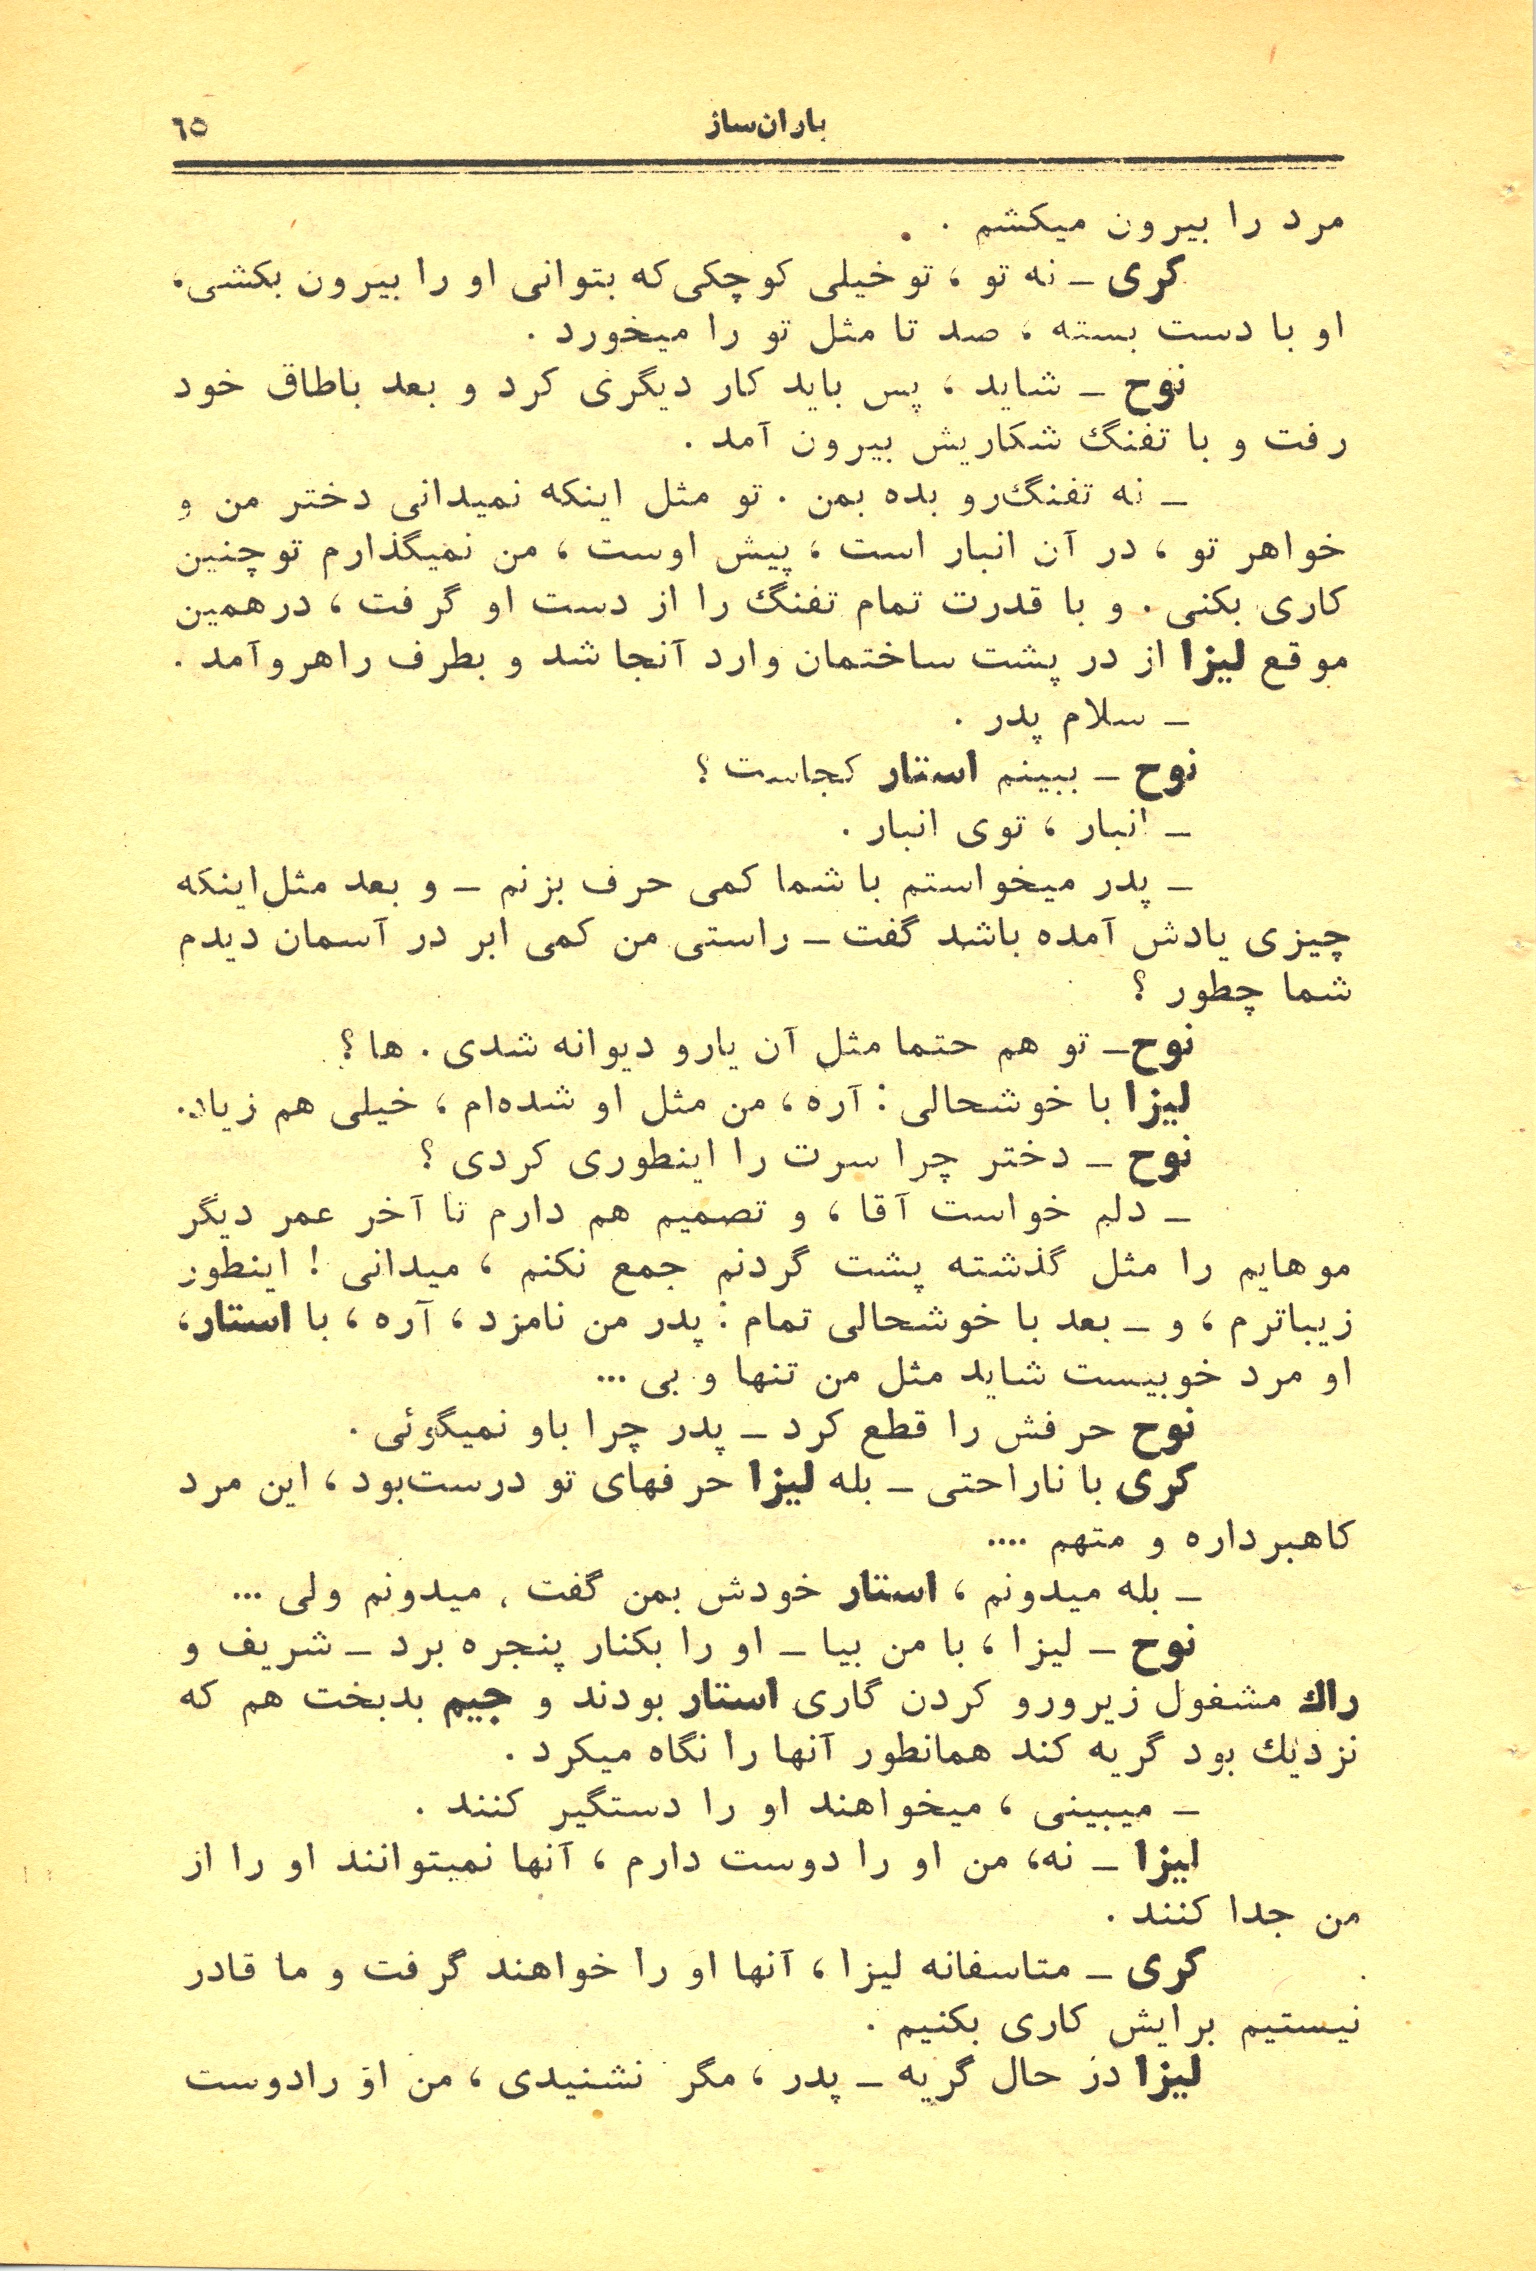 باران‌ساز
٦٥
مرد را بیرون میکشم .
کری ـ نه تو ، تو خیلی کوچکی که بتوانی او را بیرون بکشی،
او با دست بسته ، صد تا مثل تو را میخورد .
نوح ـ شاید ، پس باید کار دیگری کرد و بعد باطاق خود
رفت و با تفنگ شکاریش بیرون آمد .
ـ نه تفنگ‌رو بده بمن . تو مثل اینکه نمیدانی دختر من و
خواهر تو ، در آن انبار است ، پیش اوست ، من نمیگذارم تو چنین
کاری بکنی . و با قدرت تمام تفنگ را از دست او گرفت ، درهمین
موقع لیزا از در پشت ساختمان وارد آنجا شد و بطرف راهرو آمد .
ـ سلام پدر .
نوح ـ ببینم استار کجاست ؟
ـ انبار ، توی انبار .
ـ پدر میخواستم با شما کمی حرف بزنم ـ و بعد مثل‌اینکه
چیزی یادش آمده باشد گفت ـ راستی من کمی ابر در آسمان دیدم
شما چطور ؟
نوح ـ تو هم حتما مثل آن یارو دیوانه شدی . ها ؟
لیزا با خوشحالی : آره ، من مثل او شده‌ام ، خیلی هم زیاد.
نوح ـ دختر چرا سرت را اینطوری کردی ؟
ـ دلم خواست آقا ، و تصمیم هم دارم تا آخر عمر دیگر
موهایم را مثل گذشته پشت گردنم جمع نکنم ، میدانی ! اینطور
زیباترم ، و ـ بعد با خوشحالی تمام : پدر من نامزد ، آره ، با استار،
او مرد خوبیست شاید مثل من تنها و بی ...
نوح حرفش را قطع کرد ـ پدر چرا باو نمیگوئی .
کری با ناراحتی ـ بله لیزا حرفهای تو درست‌بود ، این مرد
کاهبرداره و متهم ....
ـ بله میدونم ، استار خودش بمن گفت ، میدونم ولی ...
نوح ـ لیزا ، با من بیا ـ او را بکنار پنجره برد ـ شریف و
راك مشغول زیرورو کردن گاری استار بودند و جیم بدبخت هم که
نزدیك بود گریه کند همانطور آنها را نگاه میکرد .
ـ میبینی ، میخواهند او را دستگیر کنند .
لیزا ـ نه، من او را دوست دارم ، آنها نمیتوانند او را از
من جدا کنند .
کری ـ متاسفانه لیزا ، آنها او را خواهند گرفت و ما قادر
نیستیم برایش کاری بکنیم .
لیزا در حال گریه ـ پدر ، مگر نشنیدی ، من او رادوست